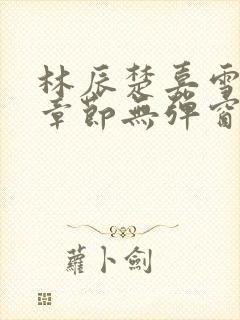 林辰楚嘉雪
章節無彈窗
蘿卜劍